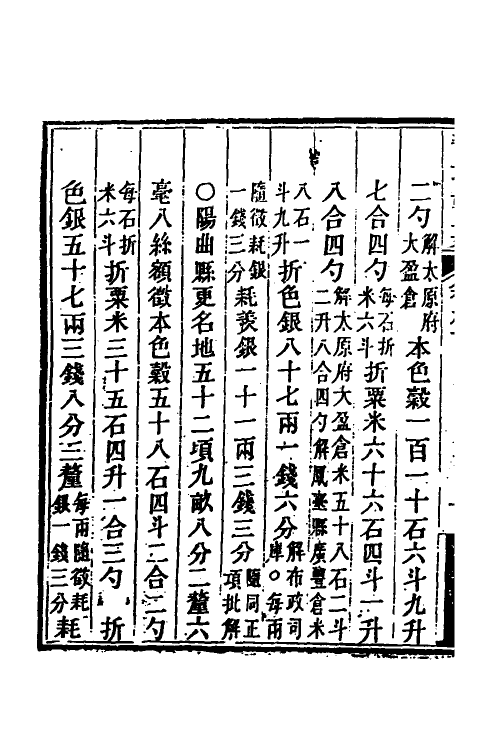 二勺解太原府大盈倉本色穀一百一十石六斗九升
七合四勺每石折米六斗折粟米六十六石四斗一升
八合四勺解太原府大盈倉米五十八石二斗二升八合四勺解鳳臺縣廣豐倉米
八石一斗九升折色銀八十七兩一錢六分解布政司庫〇每兩
隨徵耗銀一錢三分耗羨銀一十一兩三錢三分隨同正項批解
〇陽曲縣更名地五十二項九畝八分二釐六
毫八絲額徵本色穀五十八石四斗二合二勺
每石折米六斗折粟米三十五石四升一合三勺 折
色銀五十七兩三錢八分三釐每兩隨徵耗銀一錢三分耗